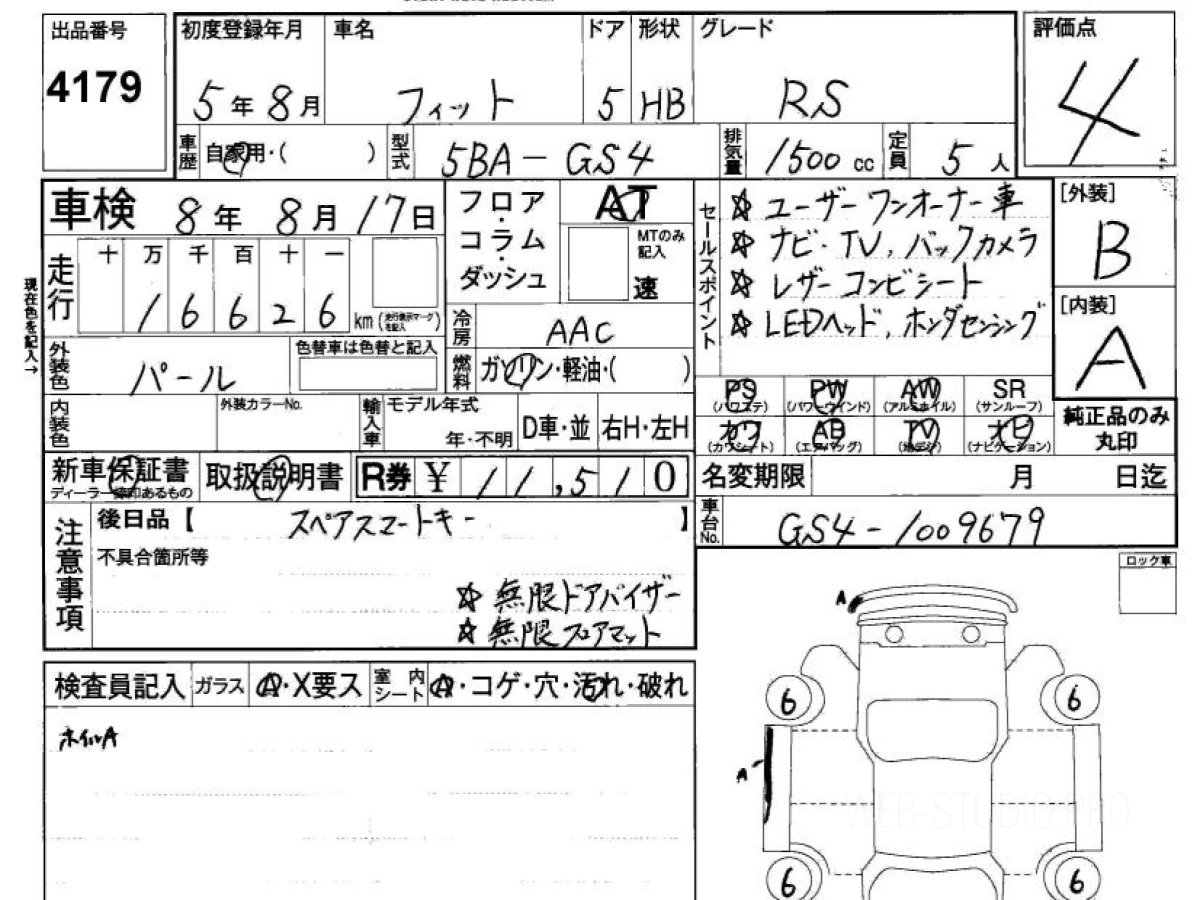 出品番号
4179
初度登録年月
5年8月
車名
フィット
ドア
5
形状
HB
グレード
RS
評価点
4
車歴
自家用・(　　　)
型式
5BA-GS4
排気量
1500 cc
定員
5人
車検
8年8月17日
フロア・コラム・ダッシュ
AT
MTのみ記入
速
セールスポイント
☆ユーザーワンオーナー車
☆ナビ・TV,バックカメラ
☆レザーコンビシート
☆LEDヘッド,ホンダセンシング
[外装]
B
[内装]
A
純正品のみ丸印
現在色を記入→
走行
十 万 千 百 十 一
1 6 6 2 6
km (走行表示マークを記入)
冷房
AAC
外装色
パール
色替車は色替と記入
燃料
ガソリン・軽油・(　　　)
PS (パワステ)
PW (パワーウインド)
AW (アルミホイル)
SR (サンルーフ)
カワ (カワシート)
AB (エアバッグ)
TV (地デジ)
ナビ (ナビゲーション)
内装色
外装カラーNo.
輸入車
モデル年式
年・不明
D車・並
右H・左H
新車保証書
ディーラー捺印あるもの
取扱説明書
R券 ¥ 11,510
名変期限　月　日迄
車台No.
GS4-1009679
注意事項
後日品【 スペアスマートキー 】
不具合箇所等
☆無限ドアバイザー
☆無限フロアマット
ロック車
検査員記入
ガラス
A・X要ス
室内シート
A・コゲ・穴・汚れ・破れ
ホイルA
A
6 6
A
6 6
WEB-STUDIO.PRO